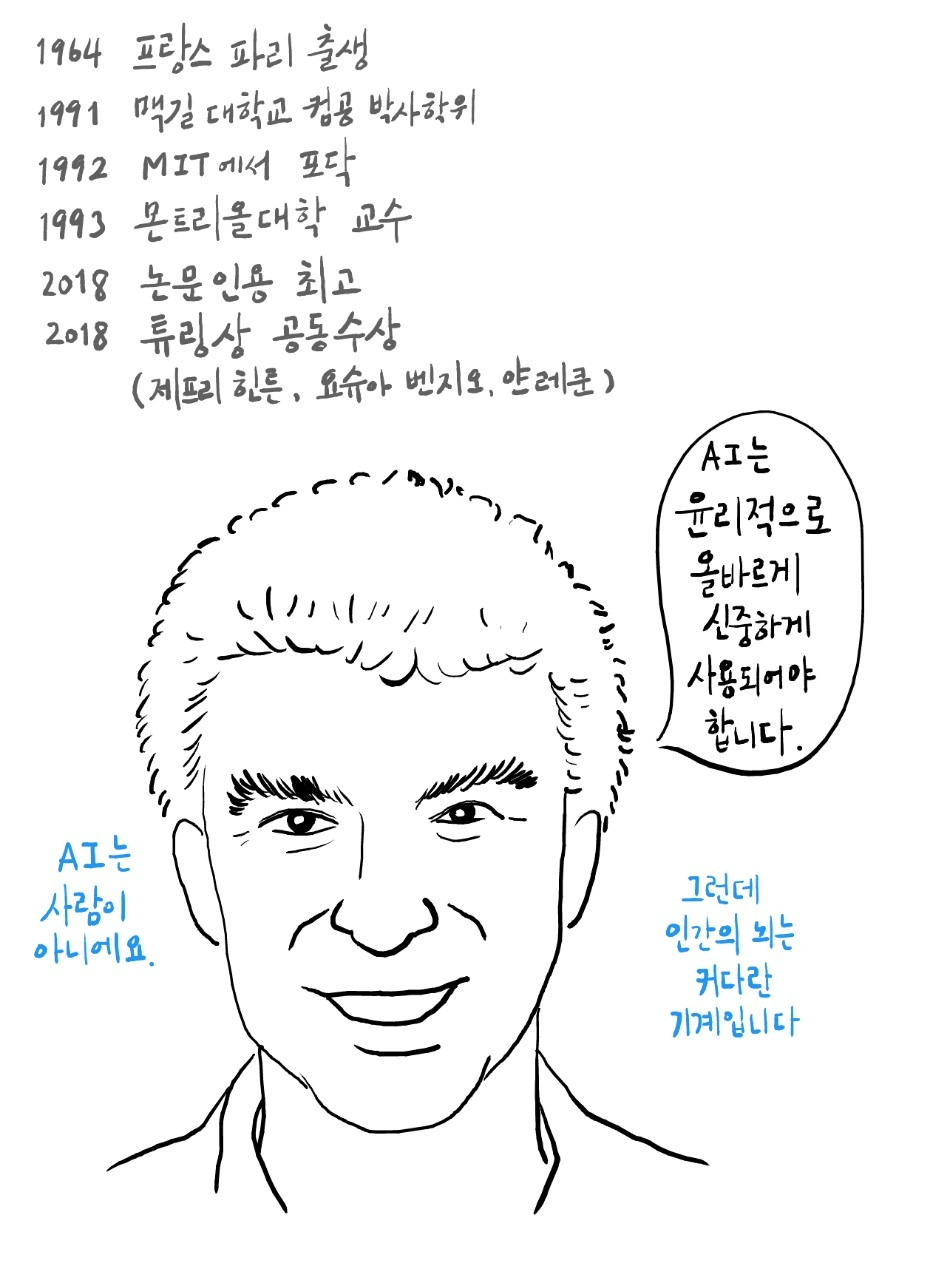 1964 프랑스 파리 출생
1991 맥길 대학교 컴공 박사학위
1992 MIT에서 포닥
1993 몬트리올대학 교수
2018 논문인용 최고
2018 튜링상 공동수상
(제프리 힌튼, 요슈아 벤지오, 얀 레쿤)
AI는
윤리적으로
올바르게
신중하게
사용되어야
합니다.
AI는
사람이
아니에요.
그런데
인간의 뇌는
커다란
기계입니다